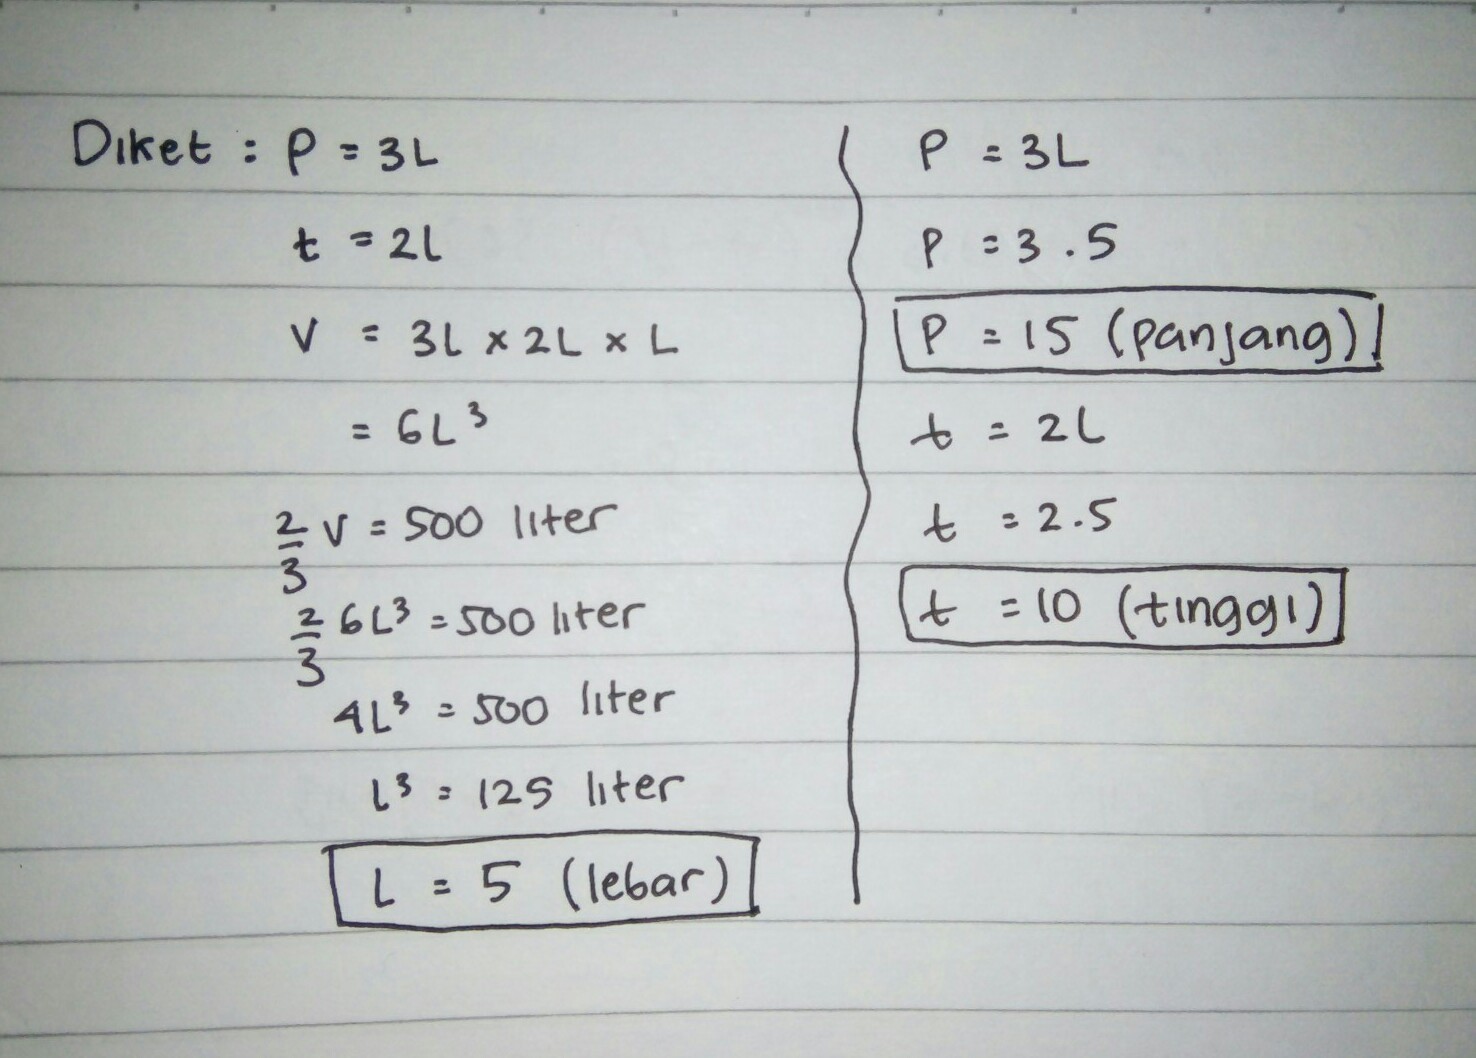 Diket : P = 3L
t = 2L
V = 3L x 2L x L
= 6L³
2/3 V = 500 liter
2/3 6L³ = 500 liter
4L³ = 500 liter
L³ = 125 liter
L = 5 (lebar)
P = 3L
P = 3 . 5
P = 15 (panjang)
t = 2L
t = 2 . 5
t = 10 (tinggi)